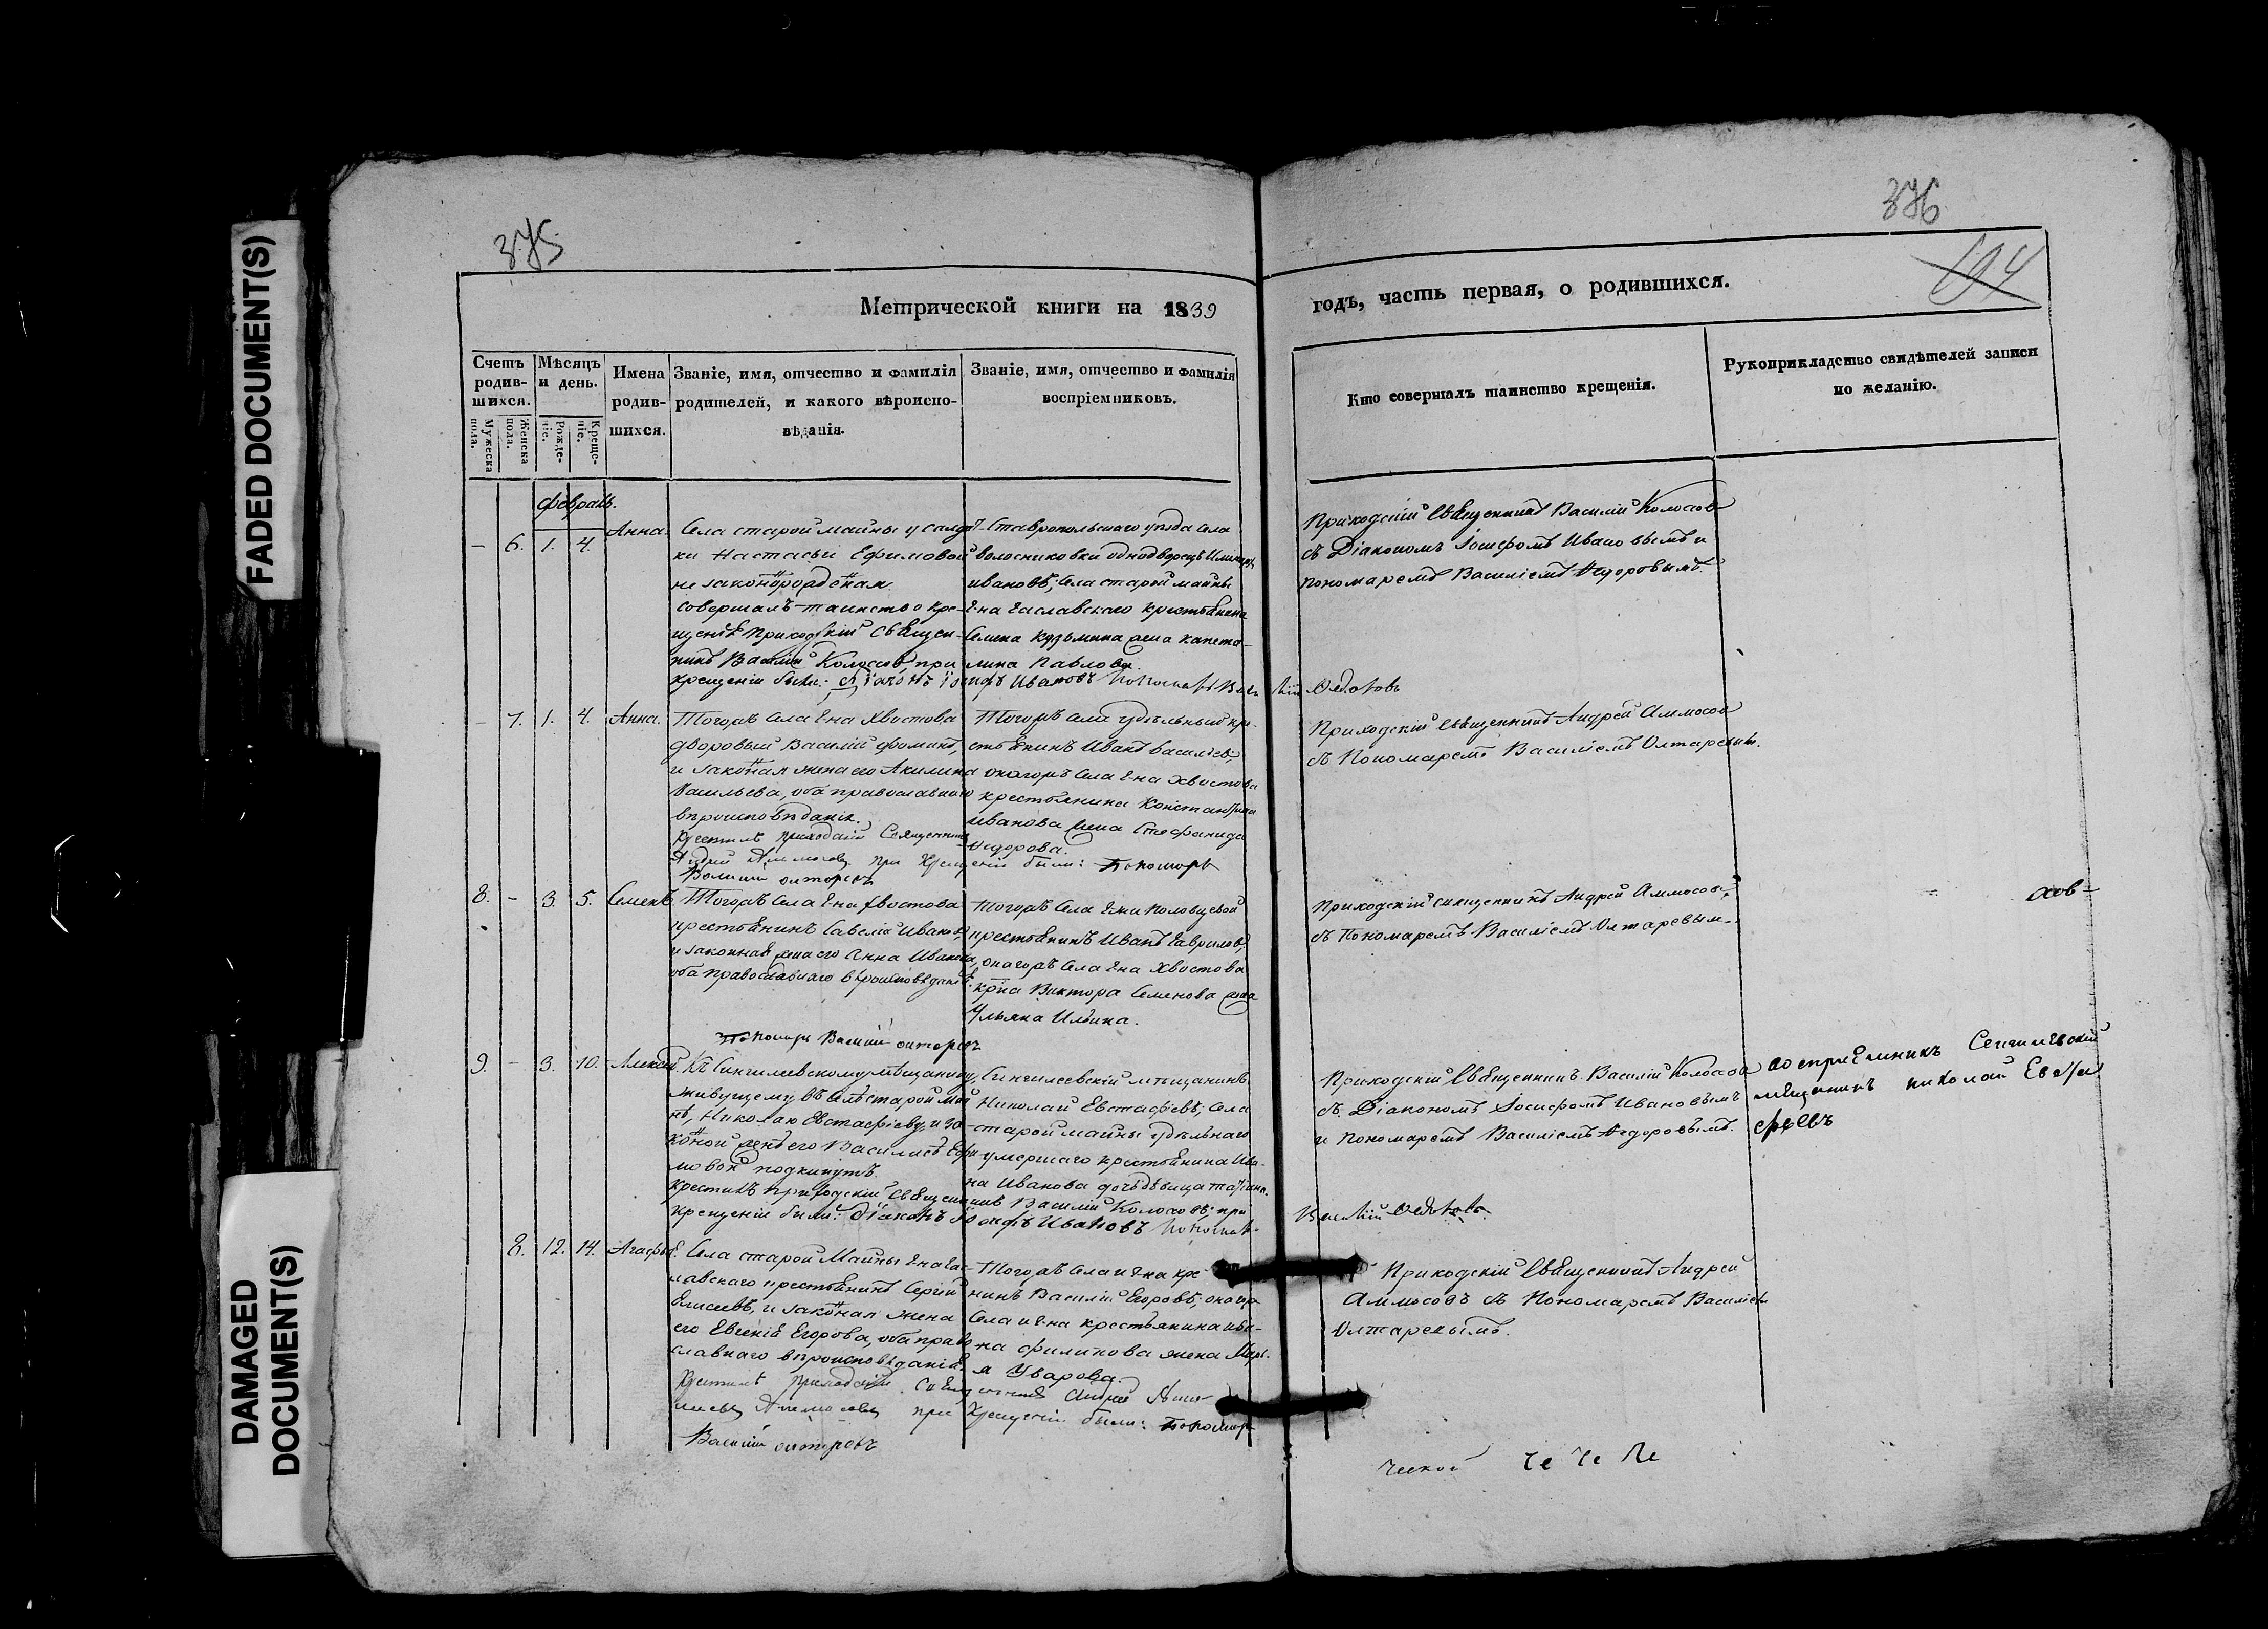 FADED DOCUMENT(S)
DAMAGED
DOCUMENT(S)
375
376
194
Метрической книги на 1839
годъ, часть первая, о родившихся.
Счетъ
родив-
шихся.
Мужеска
пола.
Женска
пола.
Мѣсяцъ
и день.
Рожде-
ніе.
Креще-
ніе.
Имена
родив-
шихся.
Званіе, имя, отчество и фамилія
родителей, и какого вѣроиспо-
вѣданія.
Званіе, имя, отчество и фамилія
воспріемниковъ.
Кто совершалъ таинство крещенія.
Рукоприкладство свидѣтелей записи
по желанію.
февраль.
– 6. 1. 4. Анна.
Села старой майны у солдат-
ки Настасьи Ефимовой
незаконнорожденная.
совершалъ таинство кре-
щенія приходскій священ-
никъ Василій Колосовъ, при
крещеніи были: Діаконъ Іосифъ Ивановъ
Ставропольскаго уѣзда села
волосниковки однодворецъ
ивановъ; села старой майны
крестьянина
Семена Кузьмина жена капето-
лина Павлова.
Приходскій Священникъ Василій Колосовъ
съ Діакономъ Іосифомъ Ивановымъ и
пономаремъ Василіемъ Федоровымъ.
Федотовъ
– 7. 1. 4. Анна.
Тогожъ села г-на Хвостова
дворовый Василій фоминъ,
и законная жена его Акилина
Васильева, оба православнаго
вѣроисповѣданія.
крестилъ приходскій Священникъ
Андрей Аммосовъ при крещеніи были: Пономарь
Василій олтаревъ
Тогожъ села удѣльный кре-
стьянинъ Иванъ Васильевъ,
онагожъ села г-на хвостова
крестьянина Константина
иванова жена Стефанида
Федорова.
Приходскій Священникъ Андрей Аммосовъ
съ Пономаремъ Василіемъ Олтаревымъ.
8. – 3. 5. Семенъ.
Тогожъ села г-на хвостова
крестьянинъ Савелій Ивановъ,
и законная жена его Анна Иванова,
оба православнаго вѣроисповѣданія.
Пономарь Василій олтаревъ
Тогожъ села г-жи половцевой
крестьянинъ Иванъ Гавриловъ,
онагожъ села г-на Хвостова
кр-на Виктора Семенова жена
Ульяна Ильина.
Приходскій священникъ Андрей Аммосовъ
съ Пономаремъ Василіемъ Олтаревым-
9. – 3. 10. Алексій.
Къ Сингилеевскому мѣщанину,
живущему въ селѣ старой май
нѣ, Николаю Евстафіеву, и за-
конной женѣ его Василисѣ Ефи-
мовой подкинутъ.
крестилъ приходскій священникъ Василій Колосовъ; при
крещеніи были: Діаконъ Іосифъ Ивановъ
Сингилеевскій мѣщанинъ
Николай Евстафіевъ; села
старой майны удѣльнаго
умершаго крестьянина Ива-
на Иванова дочь дѣвица татіана.
Приходскій Священникъ Василій Колосовъ
съ Діакономъ Іосифомъ Ивановымъ
и Пономаремъ Василіемъ Федоровымъ.
воспріемникъ Сенгилѣевскій
мѣщанинъ николай Евста
фьевъ
Василій Федотовъ
8. 12. 14. Агафья.
Села старой Майны г-на
крестьянинъ Сергій
Елисеевъ, и законная жена
его Евгенія Егорова, оба право
славнаго вѣроисповѣданія.
Крестилъ приходскій Священникъ Андрей
Аммосовъ при Крещеніи были: Пономарь
Василій олтаревъ
Тогожъ села и г-на кре
нинъ Василій Егоровъ; онагожъ
села и г-на крестьянина ива-
на филипова жена Марь-
я Уварова.
Приходскій Священникъ Андрей
Аммосовъ съ Пономаремъ Василіемъ
Олтаревымъ.
ческой